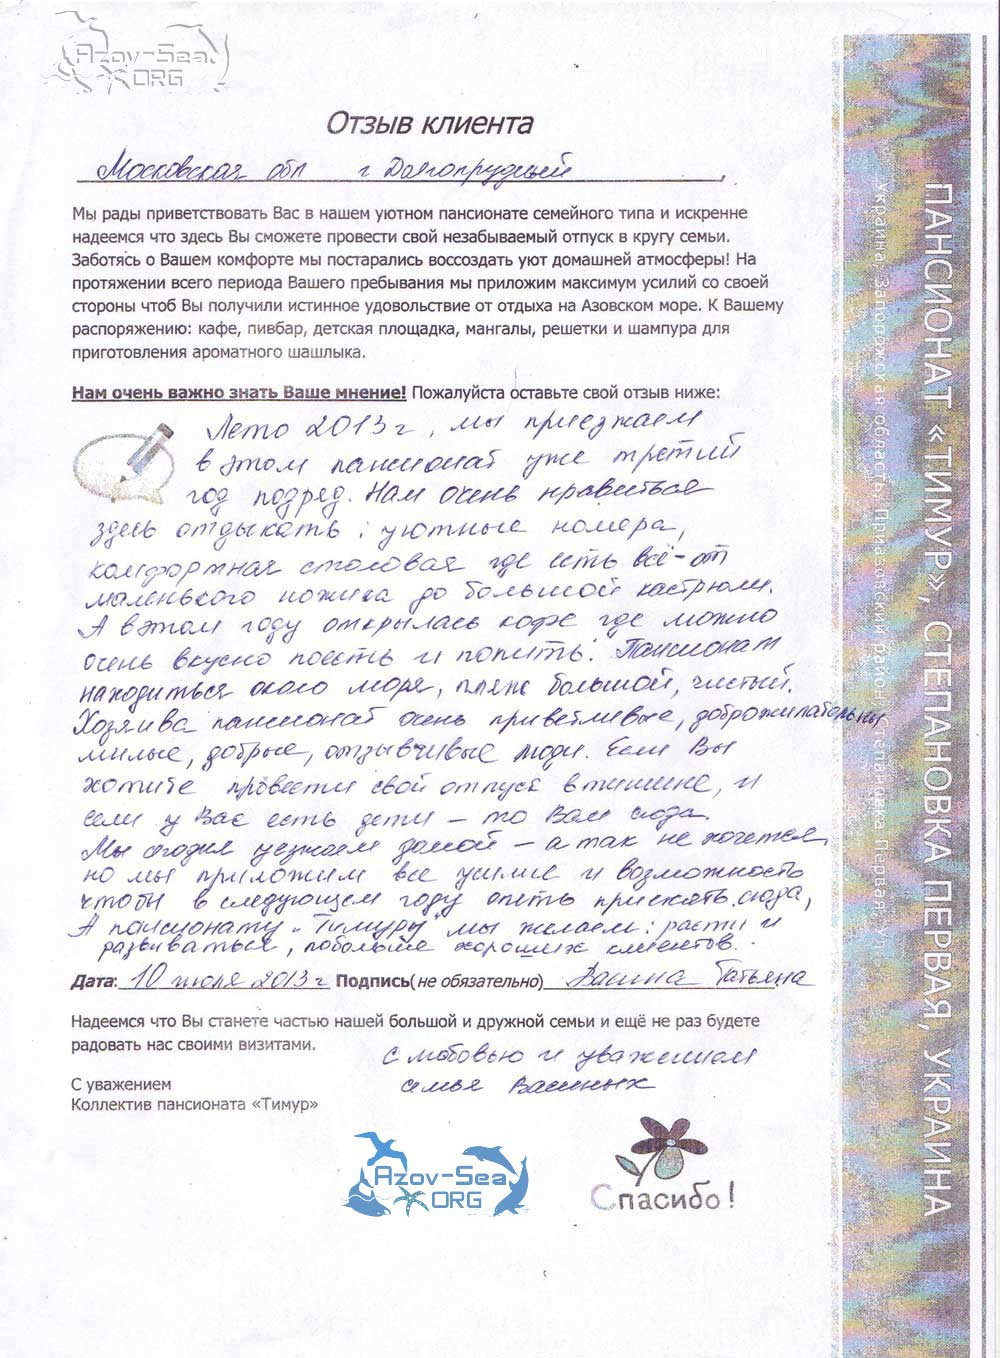 Azov-Sea
ORG
Отзыв клиента
Московская обл г Долгопрудный
Мы рады приветствовать Вас в нашем уютном пансионате семейного типа и искренне
надеемся что здесь Вы сможете провести свой незабываемый отпуск в кругу семьи.
Заботясь о Вашем комфорте мы постарались воссоздать уют домашней атмосферы! На
протяжении всего периода Вашего пребывания мы приложим максимум усилий со своей
стороны чтоб Вы получили истинное удовольствие от отдыха на Азовском море. К Вашему
распоряжению: кафе, пивбар, детская площадка, мангалы, решетки и шампура для
приготовления ароматного шашлыка.
Нам очень важно знать Ваше мнение! Пожалуйста оставьте свой отзыв ниже:
Лето 2013 г, мы приезжаем
в этом пансионат уже третий
год подряд. Нам очень нравиться
здесь отдыхать: уютные номера,
комфортная столовая где есть всё-от
маленького ножика до большой кастрюли.
А в этом году открылась кафе где можно
очень вкусно поесть и попить. Пансионат
находиться около моря, пляж большой, чистый.
Хозяива пансионат очень приветливые, доброжилательны
милые, добрые, отзывчивые люди. Если Вы
хотите провести свой отпуск в тишине, и
если у Вас есть дети - то Вам сюда.
Мы сегодня уезжаем домой - а так не хочется
но мы приложим все усилие и возможность
чтобы в следующем году опять приехать сюда,
А пансионату "Тимуру" мы желаем: расти и
развиваться, побольше хороших клиентов.
Дата: 10 июля 2013 г Подпись(не обязательно) Васина Татьяна
Надеемся что Вы станете частью нашей большой и дружной семьи и ещё не раз будете
радовать нас своими визитами.
с любовью и уважением
семья Васиных
С уважением
Коллектив пансионата «Тимур»
Azov-Sea
ORG
Спасибо!
ПАНСИОНАТ «ТИМУР», СТЕПАНОВКА ПЕРВАЯ, УКРАИНА
Украина, Запорожская область, Приазовский район, Степановка Первая, ул.